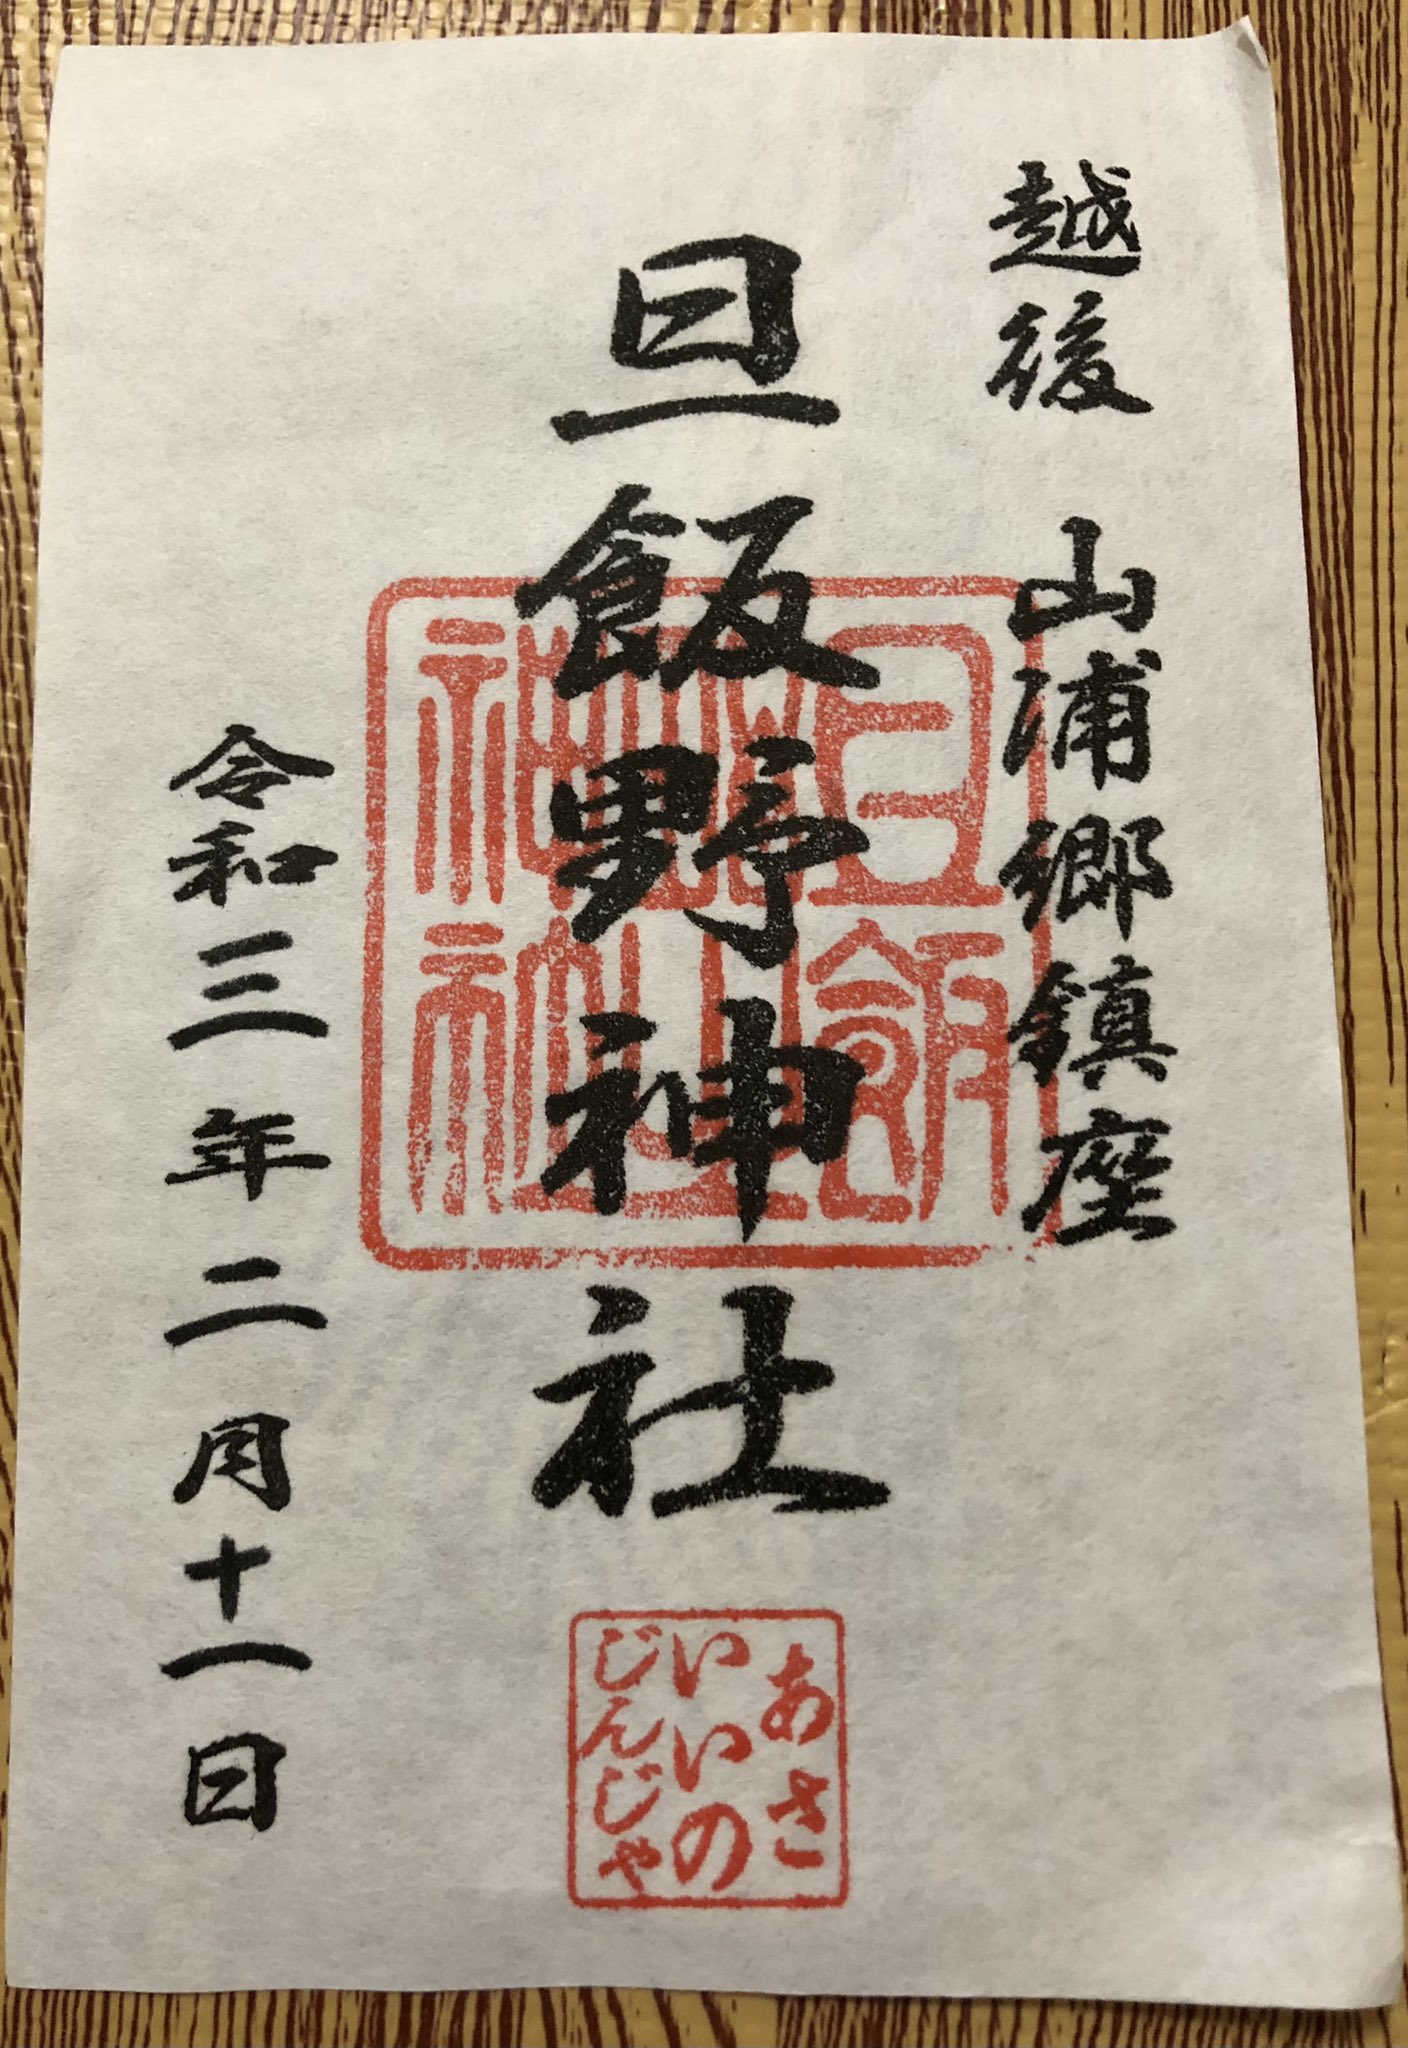 越後 山浦郷鎮座
旦飯野神社
令和三年二月十一日
旦飯
野山
神社
あさ
いいの
じんじゃ